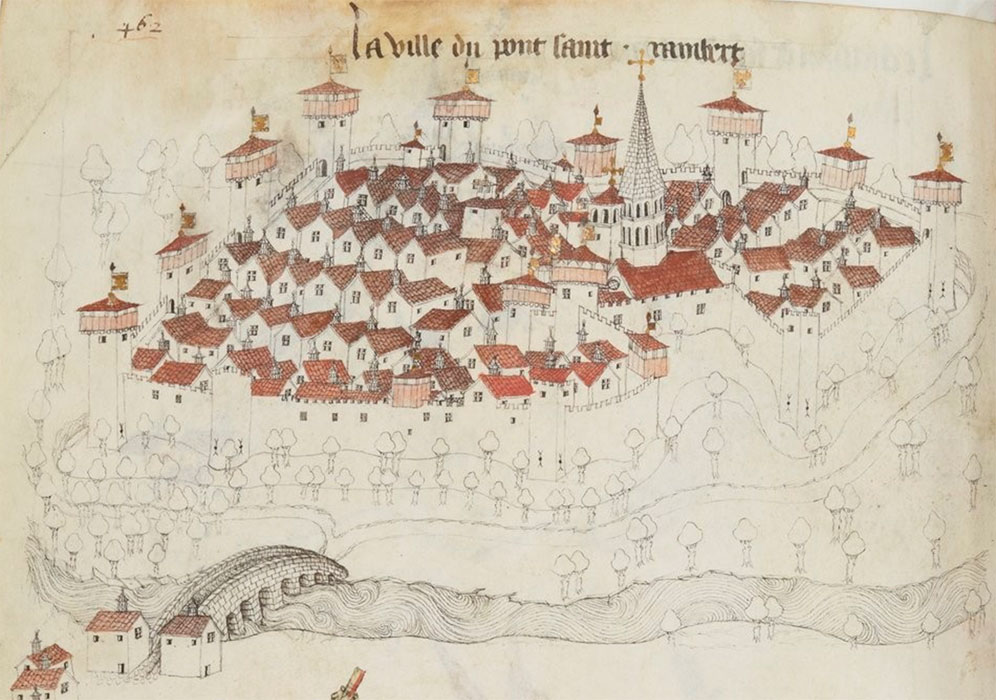 462
la ville du pont saint · rambert